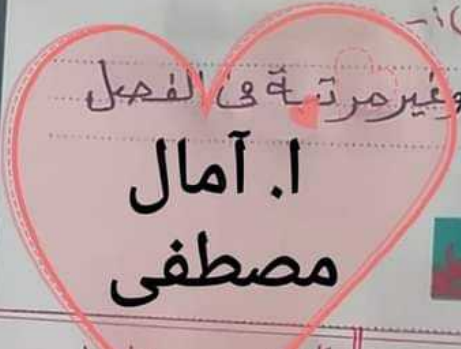 وغير مرتبة فى الفصل
ا. آمال
مصطفى